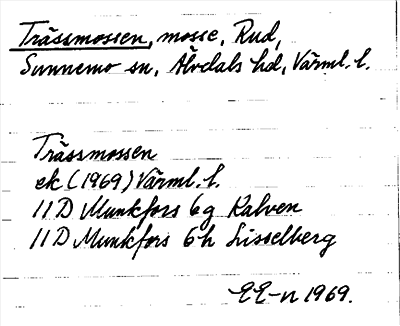 Trässmossen, mosse, Rud,
Sunnemo sn, Älvdals hd, Värml. l.
Trässmossen
ek (1969) Värml. l.
11 D Munkfors 6g Kalven
11 D Munkfors 6h Lisselberg
EE-n 1969.